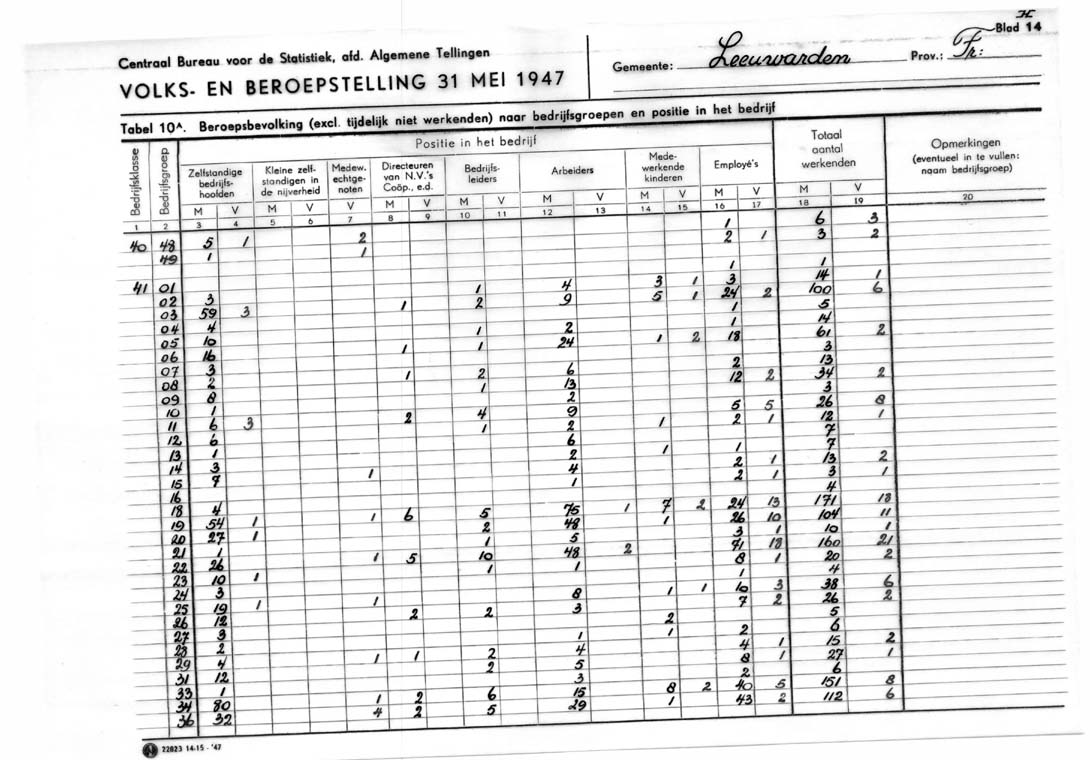 H
Blad 14
Centraal Bureau voor de Statistiek, afd. Algemene Tellingen
VOLKS- EN BEROEPSTELLING 31 MEI 1947
Gemeente: Leeuwarden Prov.: Fr:
Tabel 10A. Beroepsbevolking (excl. tijdelijk niet werkenden) naar bedrijfsgroepen en positie in het bedrijf
Bedrijfsklasse
Bedrijfsgroep
Positie in het bedrijf
Zelfstandige bedrijfshoofden
Kleine zelfstandigen in de nijverheid
Medew. echtgenoten
Directeuren van N.V.'s Coöp., e.d.
Bedrijfsleiders
Arbeiders
Medewerkende kinderen
Employé's
Totaal aantal werkenden
Opmerkingen (eventueel in te vullen: naam bedrijfsgroep)
M V M V V M V M V M V M V M V M V
1 2 3 4 5 6 7 8 9 10 11 12 13 14 15 16 17 18 19 20
40 48 5 1 2 1 6 3
49 1 1 2 1 3 2
41 01 1 1
02 3 1 4 3 1 3 14 1
03 59 3 1 2 9 5 1 24 2 100 6
04 4 1 5
05 10 1 2 1 14
06 16 1 1 24 1 2 18 61 2
07 3 3
08 2 1 2 6 2 13
09 8 1 13 12 2 34 2
10 1 2 3
11 6 3 2 4 9 5 5 26 8
12 6 1 2 1 2 1 12 1
13 1 6 7
14 3 2 1 1 7
15 7 1 4 2 1 13 2
16 1 2 1 3 1
18 4 4
19 54 1 1 6 5 75 1 7 2 24 13 171 18
20 27 1 2 48 1 26 10 104 11
21 1 1 5 3 1 10 1
22 26 1 5 10 48 2 71 18 160 21
23 10 1 1 1 8 1 20 2
24 3 1 4
25 19 1 1 8 1 1 10 3 38 6
26 12 2 2 3 7 2 26 2
27 3 2 5
28 2 1 1 2 6
29 4 1 1 2 4 4 1 15 2
31 12 2 5 8 1 27 1
33 1 3 2 6
34 80 1 2 6 15 8 2 40 5 151 8
36 32 4 2 5 29 1 43 2 112 6
22823 14-15 - '47